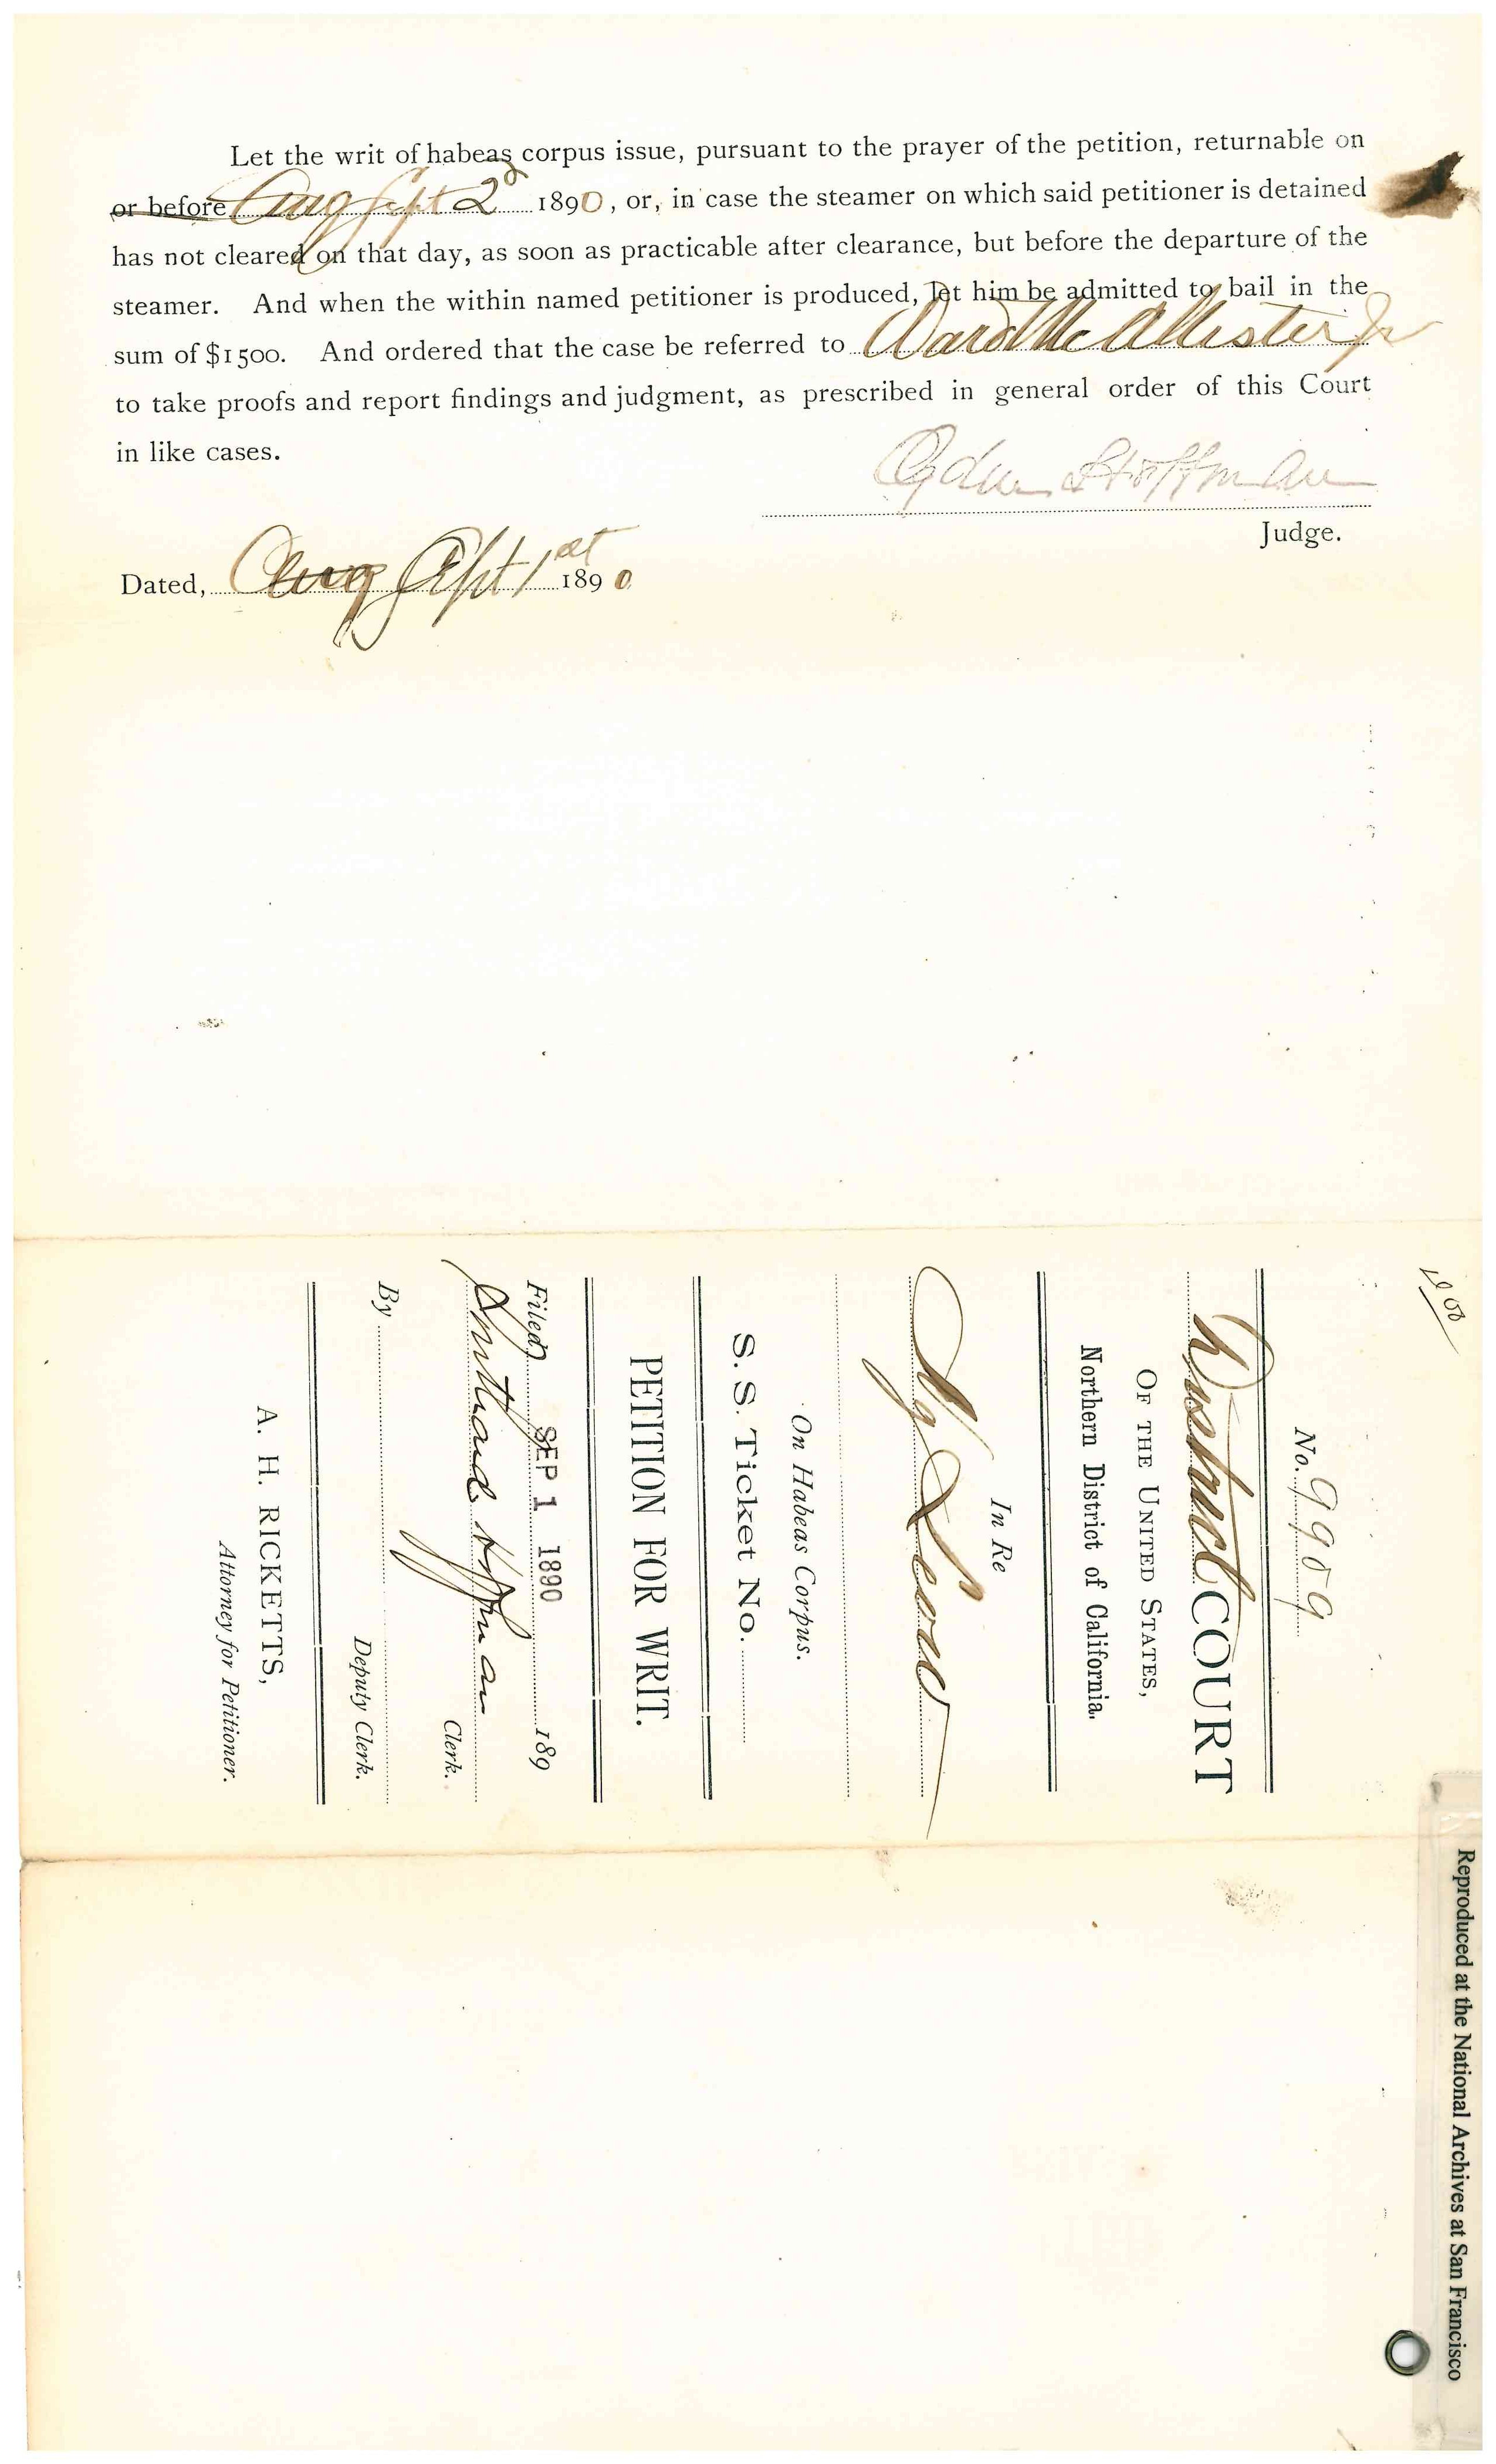 Let the writ of habeas corpus issue, pursuant to the prayer of the petition, returnable on
or before Aug Sept 2d 1890, or, in case the steamer on which said petitioner is detained
has not cleared on that day, as soon as practicable after clearance, but before the departure of the
steamer. And when the within named petitioner is produced, let him be admitted to bail in the
sum of $1500. And ordered that the case be referred to Ward McAllister Jr
to take proofs and report findings and judgment, as prescribed in general order of this Court
in like cases.
Ogden Hoffman
Judge.
Dated, Aug Sept 1st 1890
No. 9909
District COURT
OF THE UNITED STATES,
Northern District of California.
In Re
On Habeas Corpus.
S. S. Ticket No.
PETITION FOR WRIT.
Filed SEP 1 1890 189
Southard Hoffman
Clerk.
By
Deputy Clerk.
A. H. RICKETTS,
Attorney for Petitioner.
Reproduced at the National Archives at San Francisco